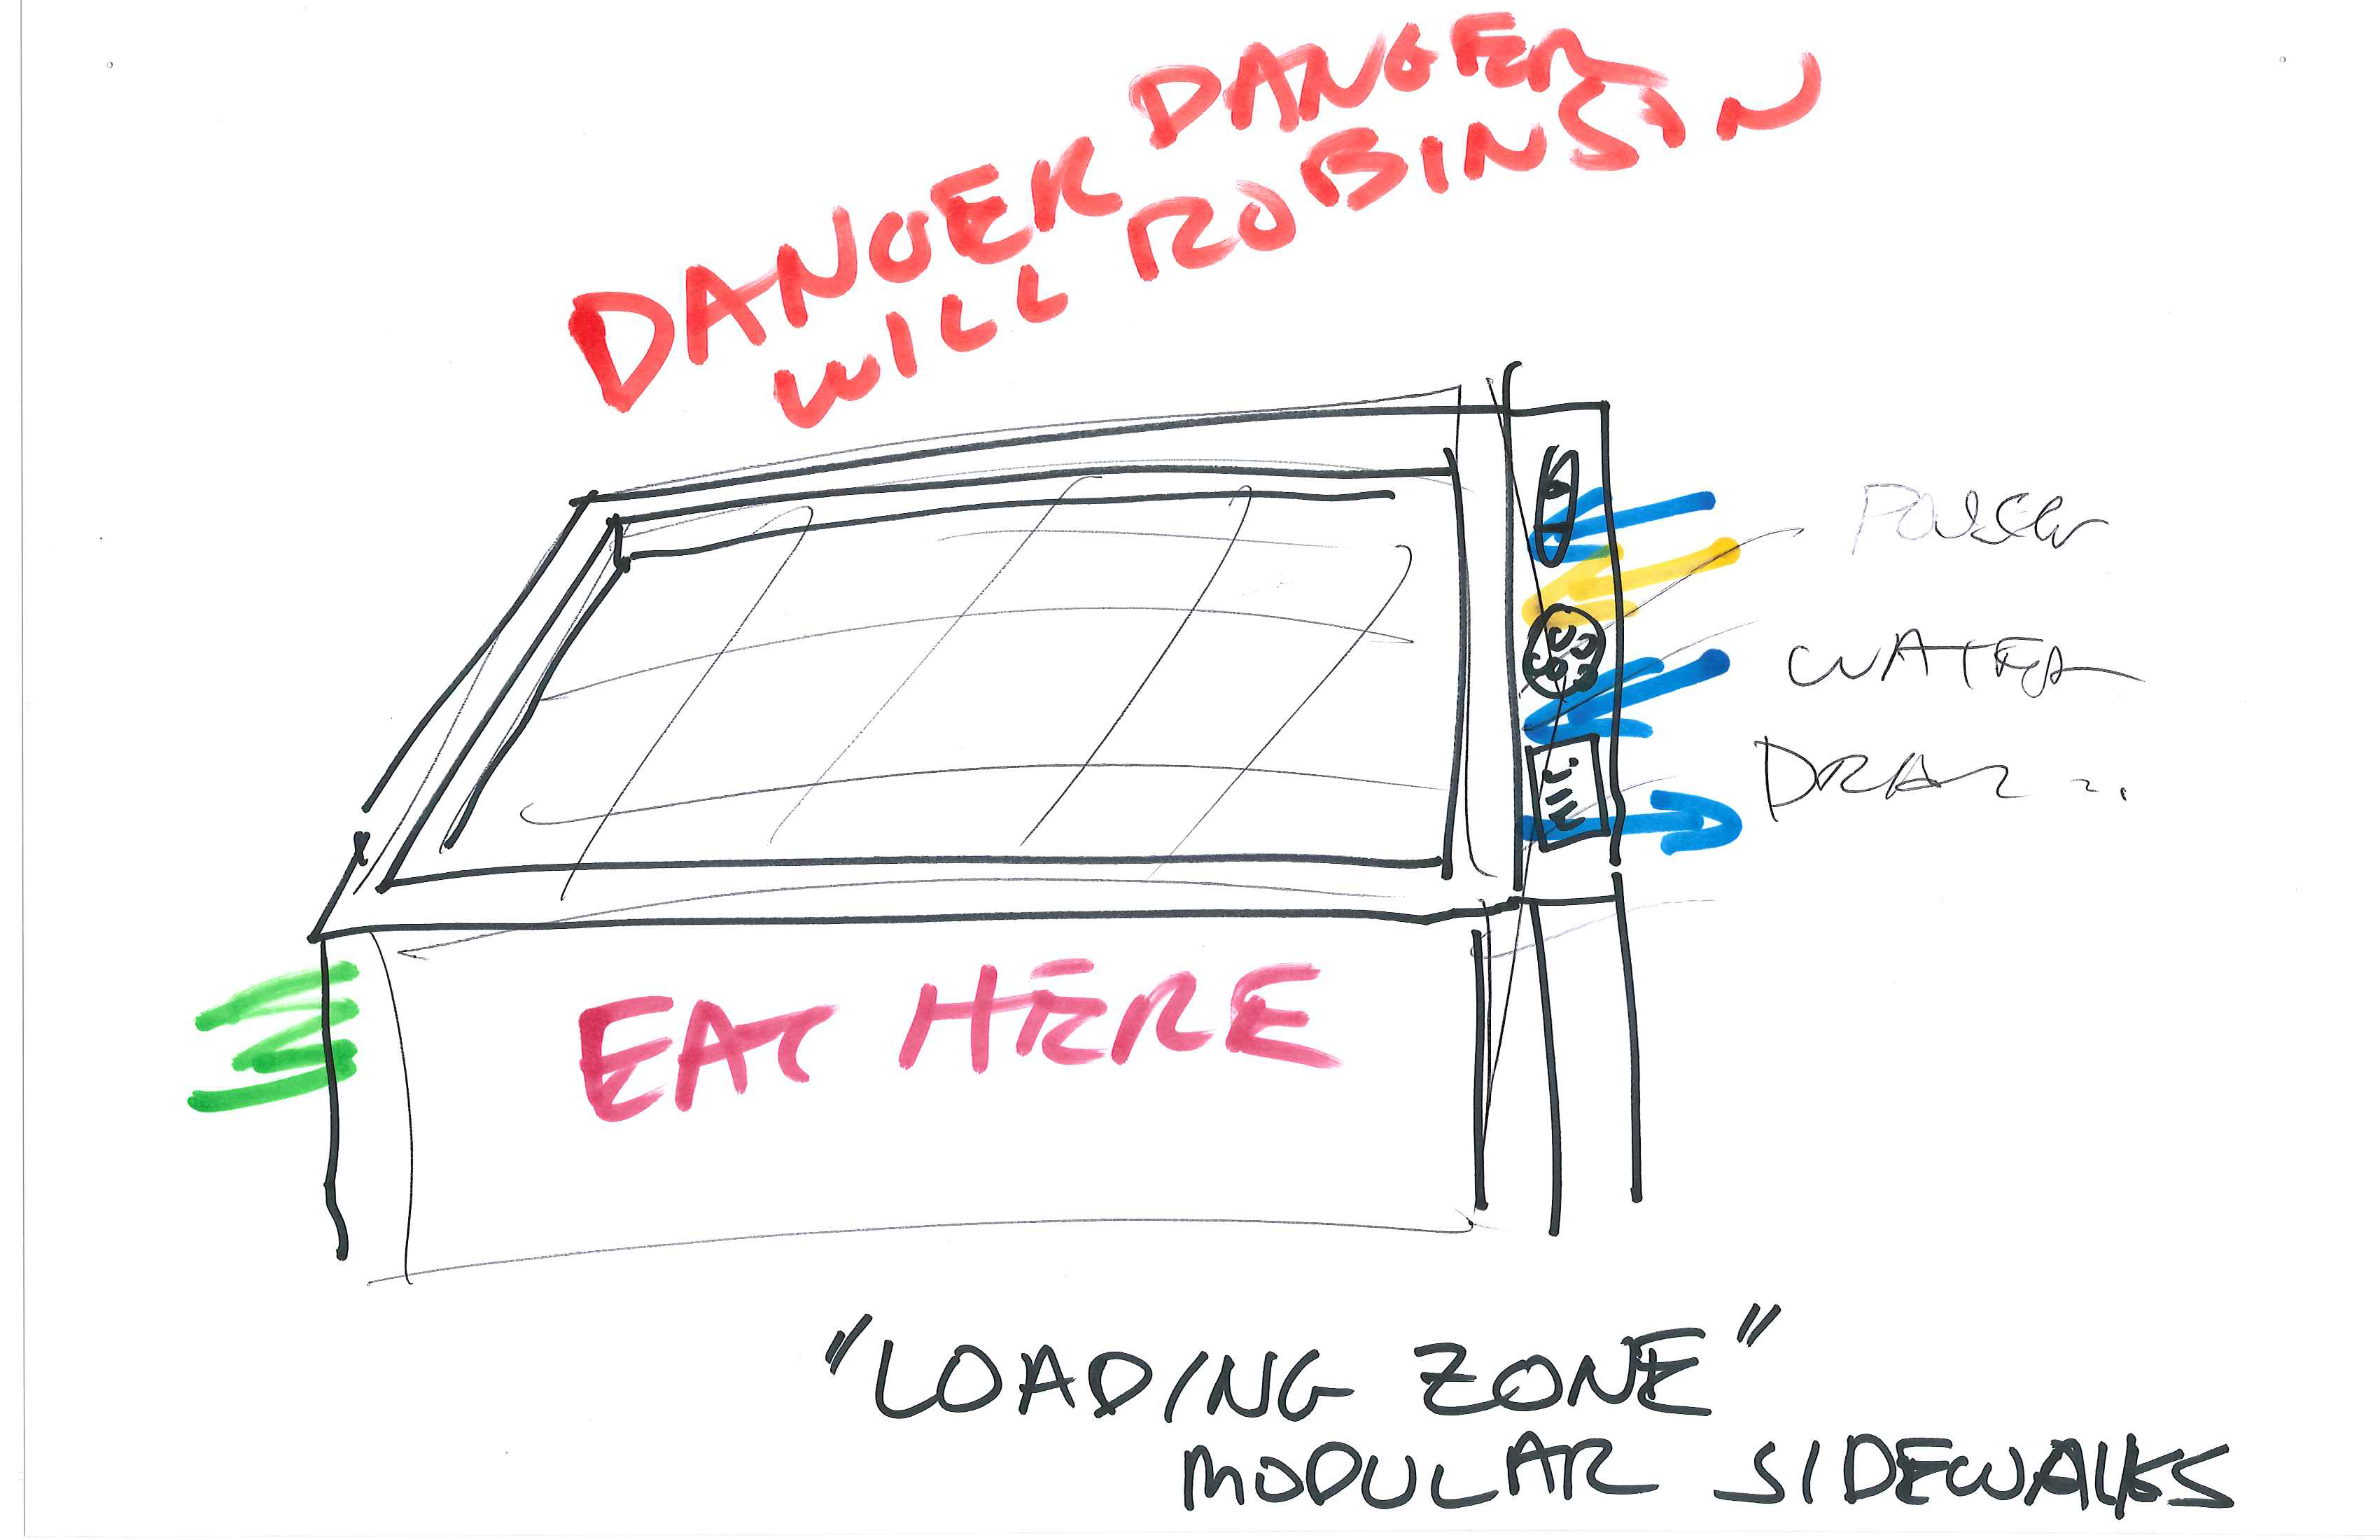 DANGER DANGER
WILL ROBINSON
POWER
WATER
DRAIN
EAT HERE
"LOADING ZONE"
MODULAR SIDEWALKS